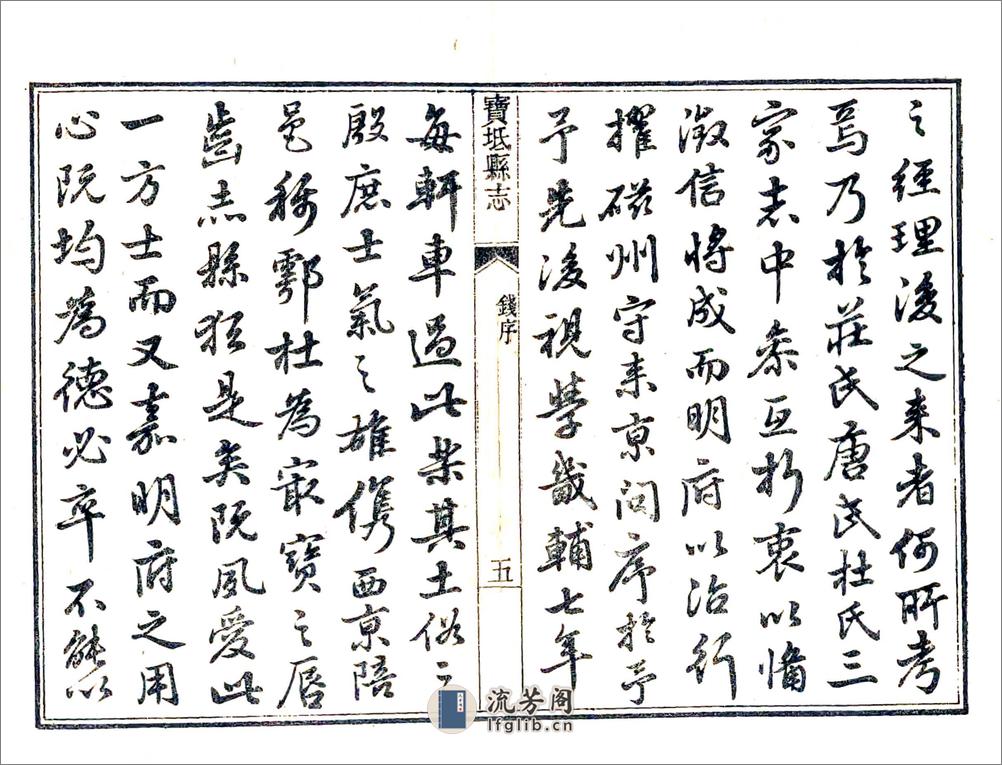 之經理後之来者何所考
焉乃於莊氏唐氏杜氏三
家志中叅互折衷以備
徵信将成而明府以治行
擢磁州守来京问序於予
予先後視學畿輔七年
寶坻縣志
錢序
五
每軒車過此樂其土俗之
殷庶士氣之雄儁西京陪
邑稱鄠杜為最寶之唇
齒志縣猶是矣阮風愛此
一方士而又嘉明府之用
心阮均為德必卒不能以
流芳阁
lfglib.cn